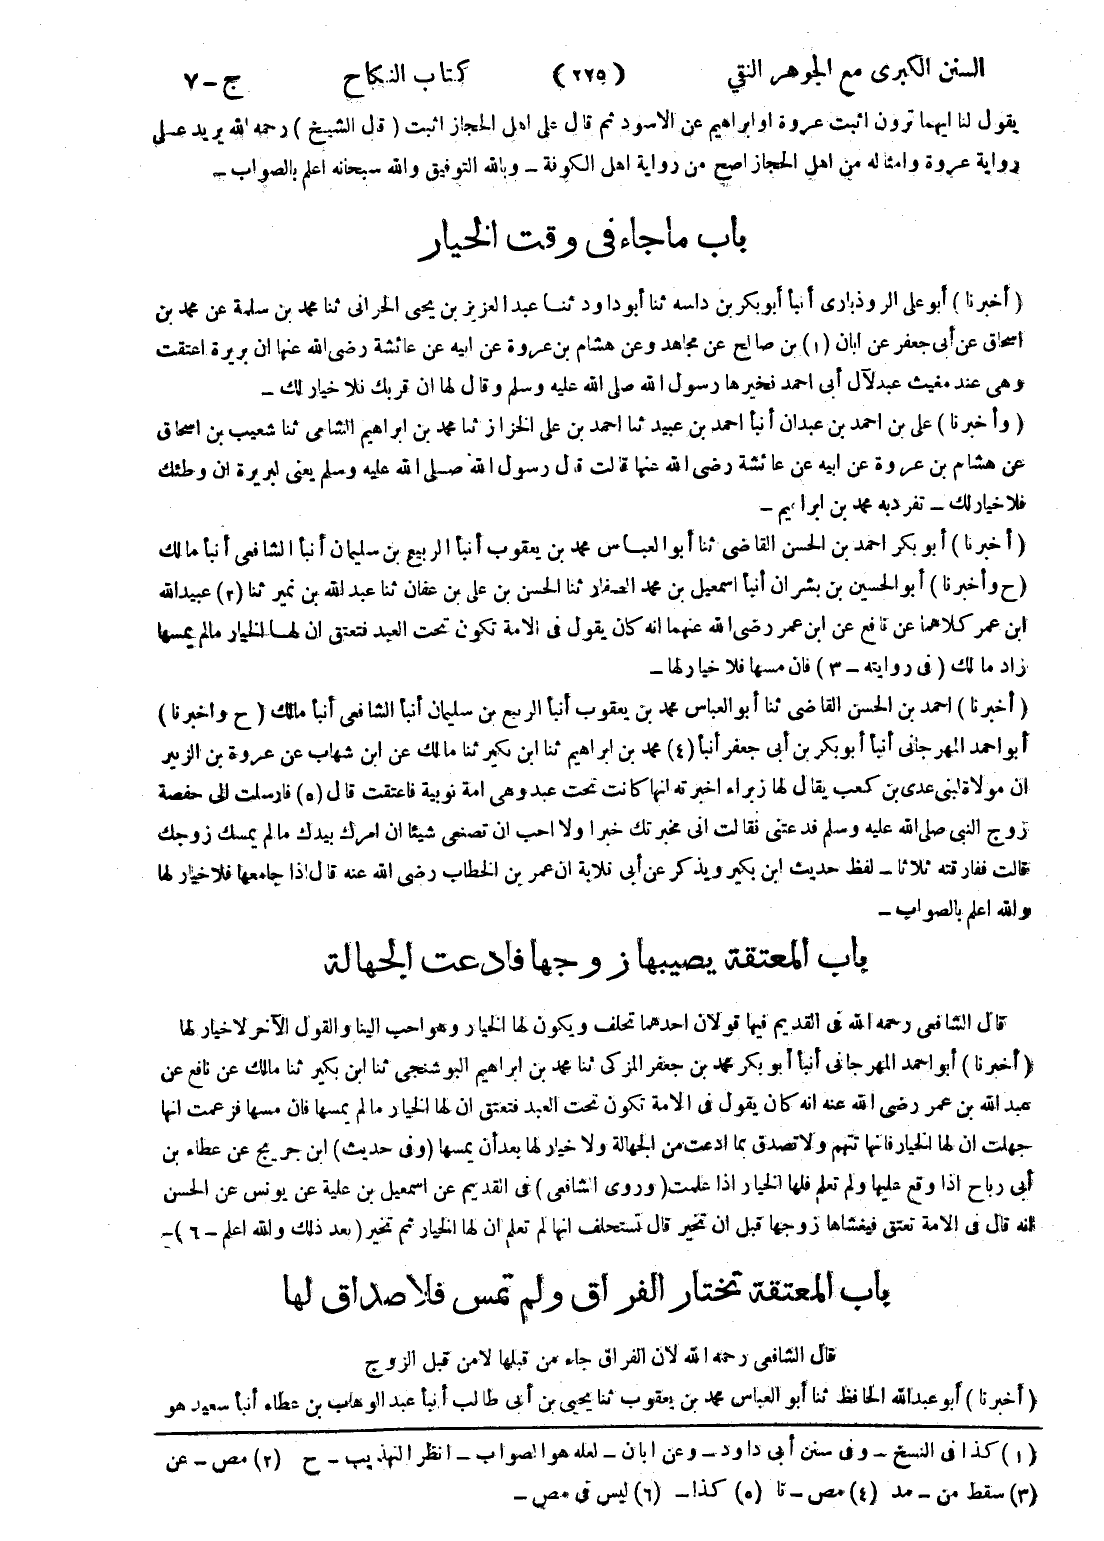 السنن الكبرى مع الجوهر النقي (٢٢٥) كتاب النكاح ج - ٧
يقول لنا ايهما ترون اثبت عروة او ابراهيم عن الاسود ثم قال على اهل الحجاز اثبت ( قال الشيخ ) رحمه الله يريد على
رواية عروة وامثاله من اهل الحجاز اصح من رواية اهل الكوفة - وبالله التوفيق والله سبحانه اعلم بالصواب -
باب ماجاء فى وقت الخيار
( أخبرنا ) أبو على الروذبارى أنبأ أبو بكر بن داسه ثنا أبو داود ثنا عبد العزيز بن يحيى الحرانى ثنا محمد بن سلمة عن محمد بن
اسحاق عن أبى جعفر عن ابان (١) بن صالح عن مجاهد وعن هشام بن عروة عن ابيه عن عائشة رضى الله عنها ان بريرة اعتقت
وهى عند مغيث عبد لآل أبى احمد فخيرها رسول الله صلى الله عليه وسلم وقال لها ان قربك فلا خيار لك -
( وأخبرنا ) على بن احمد بن عبدان أنبأ احمد بن عبيد ثنا احمد بن على الخزاز ثنا محمد بن ابراهيم الشامى ثنا شعيب بن اسحاق
عن هشام بن عروة عن ابيه عن عائشة رضى الله عنها قالت قال رسول الله صلى الله عليه وسلم يعنى لبريرة ان وطئك
فلا خيار لك - تفرد به محمد بن ابراهيم -
( أخبرنا ) أبو بكر احمد بن الحسن القاضى ثنا أبو العباس محمد بن يعقوب أنبأ الربيع بن سليمان أنبأ الشافعى أنبأ مالك
(ح وأخبرنا ) أبو الحسين بن بشران أنبأ اسمعيل بن محمد الصفار ثنا الحسن بن على بن عفان ثنا عبد الله بن نمير ثنا (٢) عبيدالله
ابن عمر كلاهما عن نافع عن ابن عمر رضى الله عنهما انه كان يقول فى الامة تكون تحت العبد فتعتق ان لها الخيار مالم يمسها
زاد مالك ( فى روايته - ٣ ) فان مسها فلا خيار لها -
( أخبرنا ) احمد بن الحسن القاضى ثنا أبو العباس محمد بن يعقوب أنبأ الربيع بن سليمان أنبأ الشافعى أنبأ مالك ( ح واخبرنا )
أبو احمد المهرجانى أنبأ أبو بكر بن أبى جعفر أنبأ (٤) محمد بن ابراهيم ثنا ابن بكير ثنا مالك عن ابن شهاب عن عروة بن الزبير
ان مولاة لبنى عدى بن كعب يقال لها زبراء اخبرته انها كانت تحت عبد وهى امة نوبية فاعتقت قال (٥) فارسلت الى حفصة
زوج النبى صلى الله عليه وسلم فدعتنى فقالت انى مخبرتك خبرا ولا احب ان تصنعى شيئا ان امرك بيدك مالم يمسك زوجك
قالت ففارقته ثلاثا - لفظ حديث ابن بكير ويذكر عن أبى قلابة ان عمر بن الخطاب رضى الله عنه قال اذا جامعها فلا خيار لها
والله اعلم بالصواب -
باب المعتقة يصيبها زوجها فادعت الجهالة
قال الشافعى رحمه الله فى القديم فيها قولان احدهما تحلف ويكون لها الخيار وهو احب الينا والقول الآخر لا خيار لها
( أخبرنا ) أبو احمد المهرجانى أنبأ أبو بكر محمد بن جعفر المزكى ثنا محمد بن ابراهيم البوشنجى ثنا ابن بكير ثنا مالك عن نافع عن
عبد الله بن عمر رضى الله عنه انه كان يقول فى الامة تكون تحت العبد فتعتق ان لها الخيار مالم يمسها فان مسها فزعمت انها
جهلت ان لها الخيار فانها تتهم ولا تصدق بما ادعت من الجهالة ولا خيار لها بعد أن يمسها (وفى حديث ) ابن جريج عن عطاء بن
أبى رباح اذا وقع عليها ولم تعلم فلها الخيار اذا علمت ( وروى الشافعى ) فى القديم عن اسمعيل بن علية عن يونس عن الحسن
انه قال فى الامة تعتق فيغشاها زوجها قبل ان تخير قال تستحلف انها لم تعلم ان لها الخيار ثم تخير ( بعد ذلك والله اعلم - ٦ )-
باب المعتقة تختار الفراق ولم تمس فلا صداق لها
قال الشافعى رحمه الله لان الفراق جاء من قبلها لا من قبل الزوج
( أخبرنا ) أبو عبدالله الحافظ ثنا أبو العباس محمد بن يعقوب ثنا يحيى بن أبى طالب أنبأ عبد الوهاب بن عطاء أنبأ سعيد هو
(١) كذا فى النسخ - وفى سنن أبى داود - وعن ابان - لعله هو الصواب - انظر التهذيب - ح (٢) مص - عن
(٣) سقط من - مد (٤) مص - نا (٥) كذا - (٦) ليس فى مص -